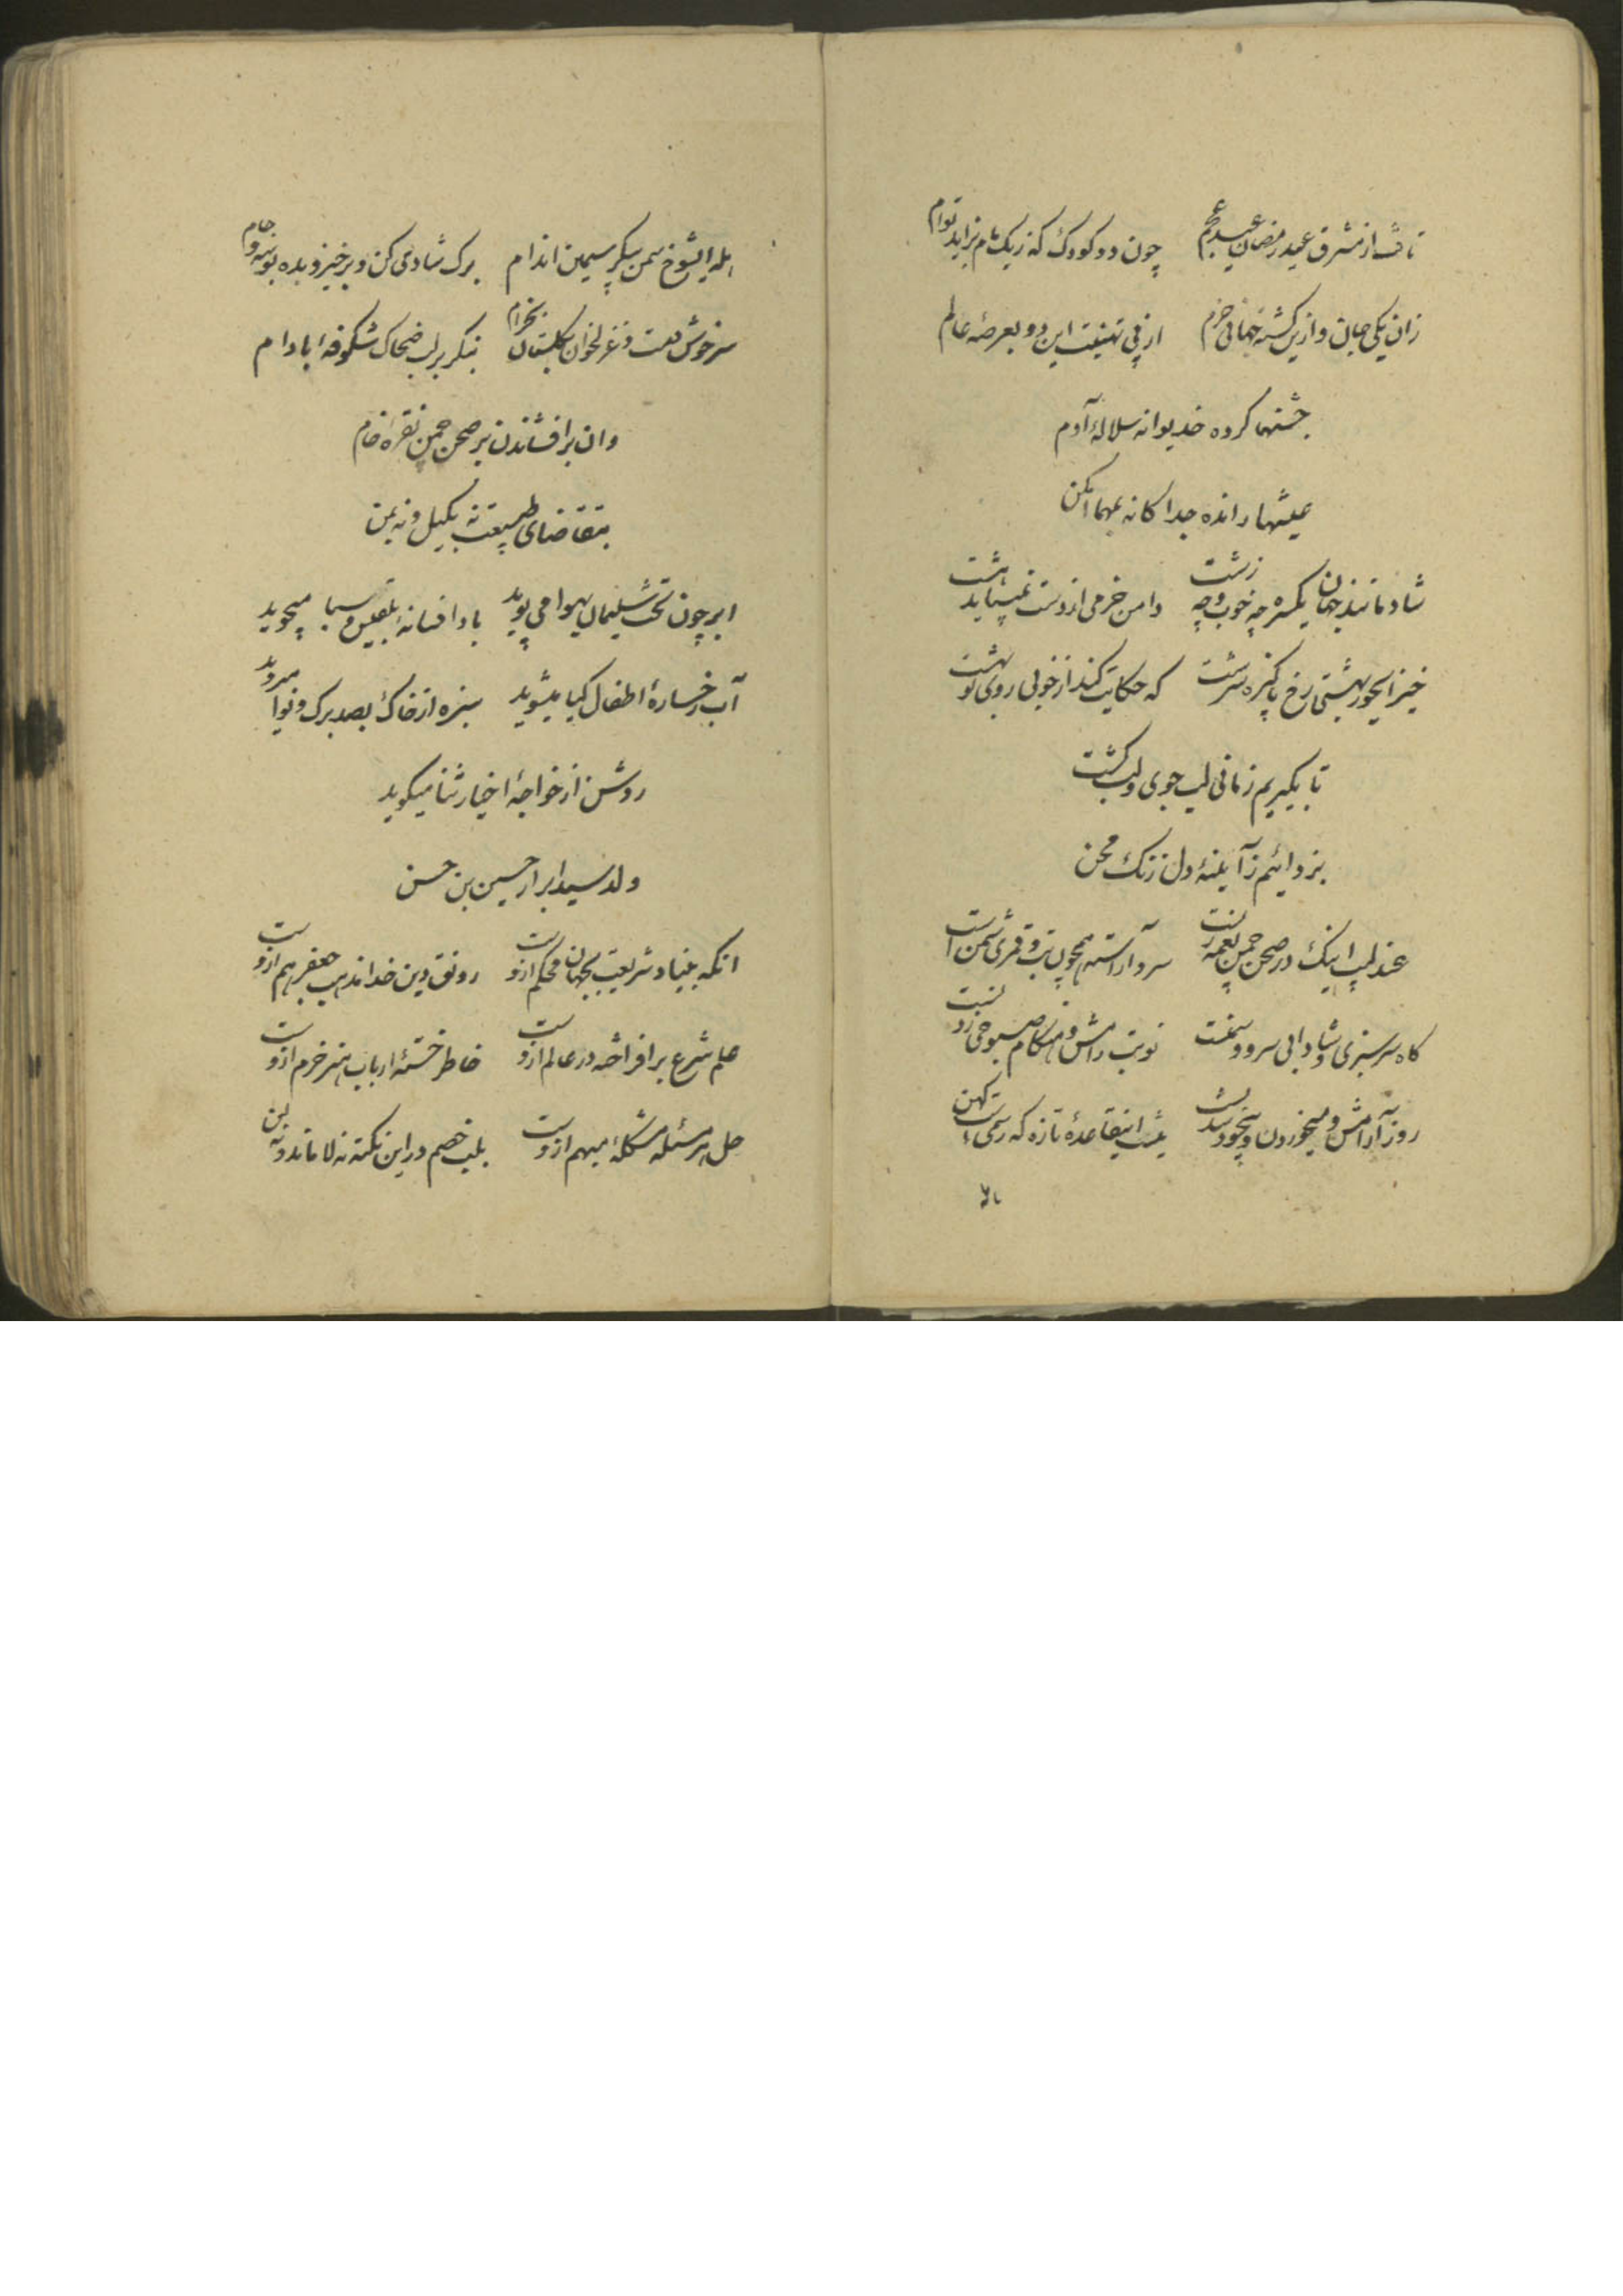 تافت از مشرق عید رمضان عید عجم چون دو کودک که ز یک مام بزاید توام
زان یکی جان و ازین گشته جهانی خرم از پی تهنیت این دو بعرصهٔ عالم
جشنها کرده خدیوانه سلالهٔ آدم
عیشها رانده جداکانه بهما امکن
شادمانند جهان یکسره چه خوب و چه زشت دامن خرمی از دست نمیباید هشت
خیز ایحور بهشتی رخ پاکیزه سرشت که حکایت کند از خوبی روی تو بهشت
تا بگیریم زمانی لب جوی و لب کشت
بزدائیم ز آیینهٔ دل زنک محن
عندلیب اینک در صحن چمن نغمه زنست سرو آراسته همچون بت و قمری شمن است
کاه سرسبزی و شادابی سرو و سمنست نوبت رامش و هنکام صبوحی زدنست
روز آرامش و میخوردن و بیخود شدنست نیست اینقاعدهٔ تازه که رسمی است کهن
بلا
هله ایشوخ سمن پیکر سیمین اندام برک شادی کن و برخیز و بده بوسه و جام
سرخوش و مست و غزلخوان بگلستان بخرام بنگر بر لب ضحاک شکوفهٔ بادام
وان برافشاندن بر صحن چمن نقرهٔ خام
بتقاضای طبیعت نه بکیل و نه بمن
ابر چون تخت سلیمان بهوا می پوید باد افسانهٔ بلقیس و سبا میجوید
آب رخسارهٔ اطفال کیا میشوید سبزه از خاک بصد برک و نوا میروید
روشن از خواجهٔ اخیار ثنا میکوید
ولد سید ابرار حسین بن حسن
انکه بنیاد شریعت بجهان محکم ازوست رونق دین خدا مذهب جعفر هم ازوست
علم شرع برافراخته در عالم ازوست خاطر خستهٔ ارباب هنر خرم ازوست
حل هر مسئله مشکلهٔ مبهم ازوست بلب خصم در این نکته نه لا ماند و نه لن